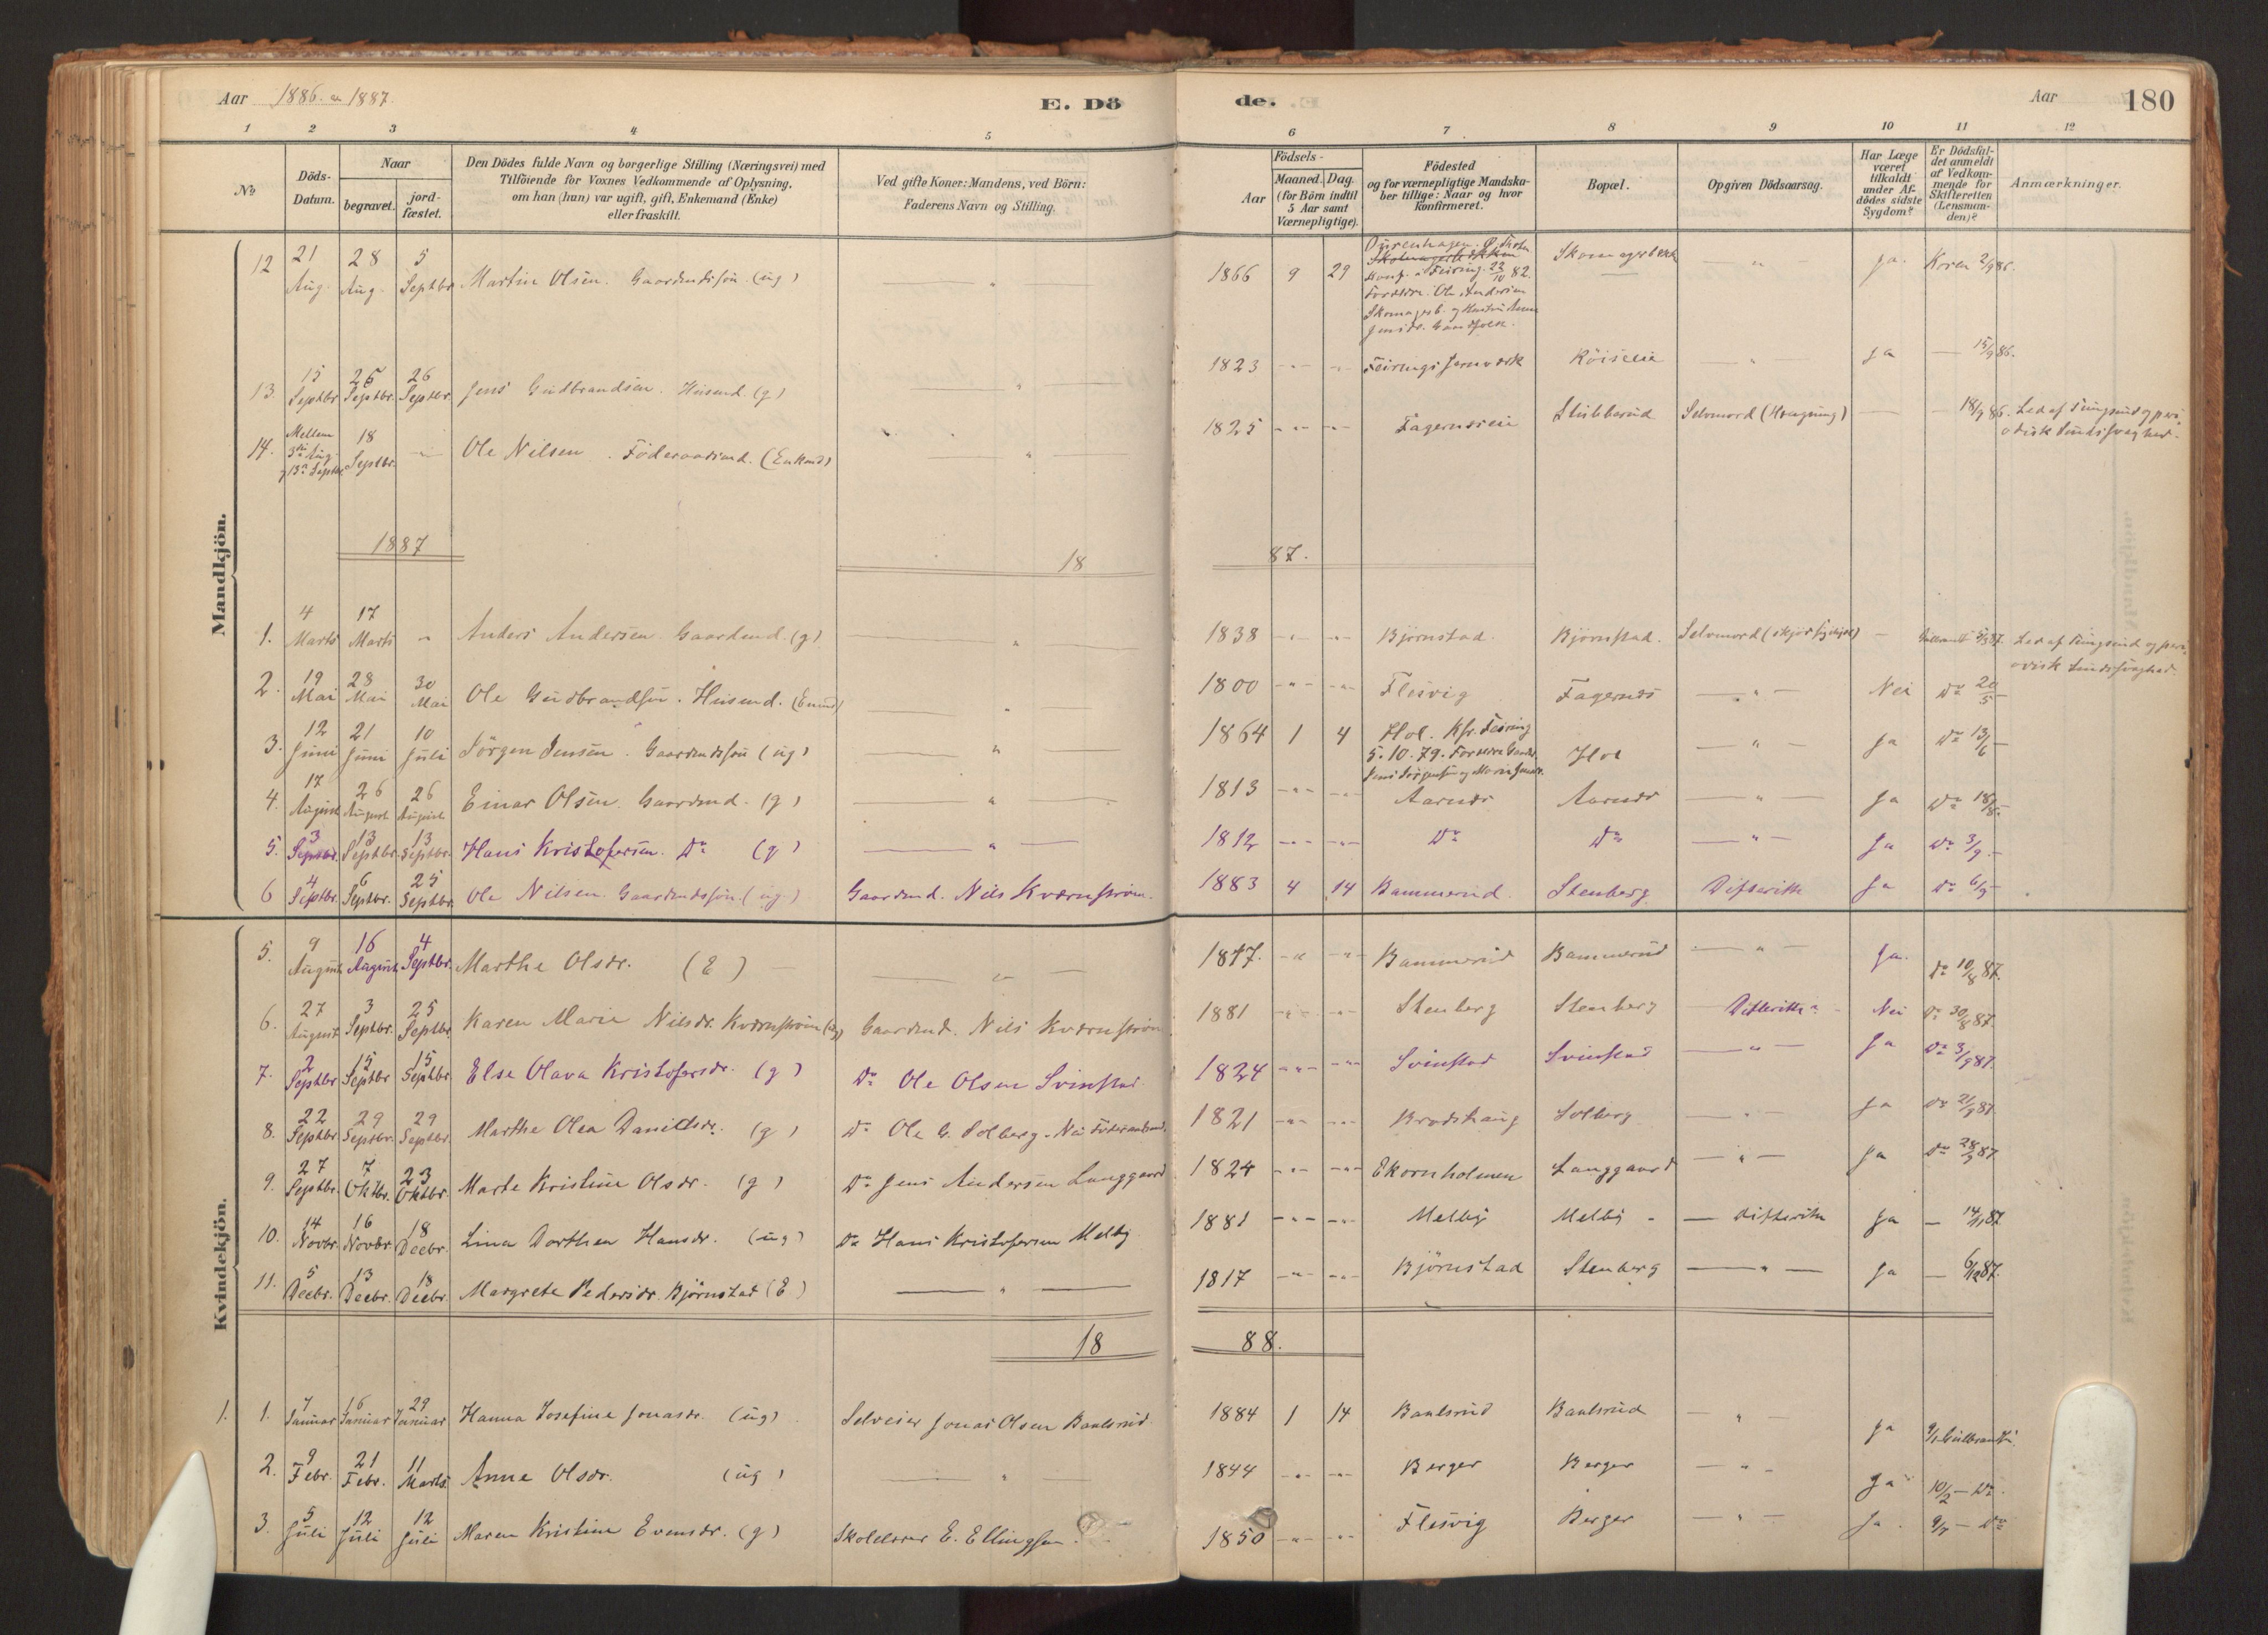 Aar 1886 og 1887.
E. Dö
de.
Aar
180
1 2 3 4 5 6 7 8 9 10 11 12
No
Döds-
Datum.
Naar
begravet.
jord-
fæstet.
Den Dödes fulde Navn og borgerlige Stilling (Næringsvei) med
Tilföiende for Voxnes Vedkommende af Oplysning,
om han (hun) var ugift, gift, Enkemand (Enke)
eller fraskilt.
Ved gifte Koner: Mandens, ved Börn:
Faderens Navn og Stilling.
Födsels-
Aar
Maaned.
Dag
(for Börn indtil
5 Aar samt
Værnepligtige).
Födested
og for værnepligtige Mandska-
ber tillige: Naar og hvor
konfirmeret.
Bopæl.
Opgiven Dödsaarsag.
Har Læge
været
tilkaldt
under Af-
dödes sidste
Sygdom?
Er Dödsfal-
det anmeldt
af Vedkom-
mende for
Skifteretten
(Lensman-
den)?
Anmærkninger.
Mandkjön.
12 21 Aug. 28 Aug. 5 Septbr Martin Olsen. Gaardmdssön (ug) — " 1866 9 29 Konf. i Feiring 22/10 82. Forældre: Ole Andersen Skomagerb. og Hustru Anne Jensdr. Gaardfolk. Skomagerbakk — " — Ja. Koren 2/9 86.
13. 15 Septbr 26 Septbr. 26 Septbr. Jens Gudbrandsen. Husmd. (g) — " — 1823 - " - - " - Feirings Jernværk Röiselie — " — Ja — 15/9 86.
14. Mellem 3die Aug. og 13de Septbr. 18 Septbr. - " - Ole Nilsen. Föderaadsmd. (Enkmd) — " — 1825 - " - - " - Fagernæseie Stubberud Selvmord (Hængning) — — 18/9 86. Led af Tungsind og peri-
odisk Sindssvaghed.
1887
18
87.
1. 4 Marts 17 Marts " Anders Andersen Gaardmd. (g) — " — 1838 - " - - " - Björnstad. Björnstad. Selvmord — Gulbrands. 5/3 87. Led af Tungsind og peri-
odisk Sindssvaghed.
2. 19 Mai 28 Mai 30 Mai Ole Gudbrandsen. Husmd. (Enmd) — " — 1800 - " - - " - Flesvig Fagernæs — " — Nei Do 20/5 —
3. 12 Juni 21 Juni 10 Juli Sörgen Jensen. Gaardmdssön (ug) — " — 1864 1 4 Hol. Kfr. Feiring 5.10.79. Forældre Gaardm. Jens Sörgensen og Marie Jensdr. Hol — " — Ja Do 13/6 —
4. 17 August 26 August 26 August Einar Olsen. Gaardmd. (g) — " — 1813 - " - - " - Aarnæs Aarnæs — " — Ja Do 18/8 —
5. 3 Septbr. 13 Septbr. 13 Septbr. Hans Kristofersen. Do (g) — " — 1812 - " - - " - Do Do — " — Ja Do 3/9 —
6 4 Septbr. 6 Septbr. 25 Septbr. Ole Nilsen Gaardmdssön (ug) Gaardmd. Nils Kværnström. 1883 4 14 Bammerud. Stenberg Difterith Ja Do 6/9 —
Kvindekjön.
5. 9 August 16 August 4 Septbr. Marthe Olsdr. (E) — " — 1817. - " - - " - Bammerud Bammerud — " — Ja. Do 10/8 87.
6. 27 August 3 Septbr. 25 Septbr. Karen Marie Nilsdr. Kværnström (ug) Gaardmd. Nils Kværnström 1881 - " - - " - Stenberg Stenberg Difterith Nei Do 30/8 87.
7. 2 Septbr 15 Septbr 15 Septbr. Else Olava Kristofersdr. (g) Do Ole Olsen Svinstad. 1824 - " - - " - Svinstad Svinstad — " — Ja Do 3/9 87.
8. 22 Septbr. 29 Septbr. 29 Septbr. Marthe Olea Danielsdr. (g) Do Ole G. Solberg. Nu Föderaadsmd. 1821 - " - - " - Brodshaug Solberg — " — Ja Do 21/9 87.
9. 27 Septbr. 7 Oktbr. 23 Oktbr. Marte Kristine Olsdr. (g) Do Jens Andersen Langgaard 1824 - " - - " - Ekornholmen Langgaard — " — Ja Do 28/9 87
10. 14 Novbr. 16 Novbr. 18 Decbr. Lina Dorthea Hansdr. (ug) Do Hans Kristofersen Melby 1881 - " - - " - Melby Melby — Difterith Ja — 14/11 87.
11. 5 Decbr. 13 Decbr. 18 Decbr. Margrete Pedersdr. Björnstad (E) — " — 1817 - " - - " - Björnstad Stenberg — " — Ja — 6/12 87.
18
88.
1. 1. 7 Januar 16 Januar 29 Januar Hanna Josefine Jonasdr. (ug) Selveier Jonas Olsen Baalsrud. 1884 1 14 Baalsrud Baalsrud — " — Ja 9/1 Gulbrands.
2. 9 Febr. 21 Febr. 11 Marts. Anne Olsdr. (ug) — " 1844 - " - - " - Berger Berger — " — Ja 10/2 — Do.
3. 5 Juli 12 Juli 12 Juli Maren Kristine Evensdr. (g) Skolelærer E. Ellingsen. 1850 - " - - " - Flesvig Berger — " — Ja. 9/7 — Do